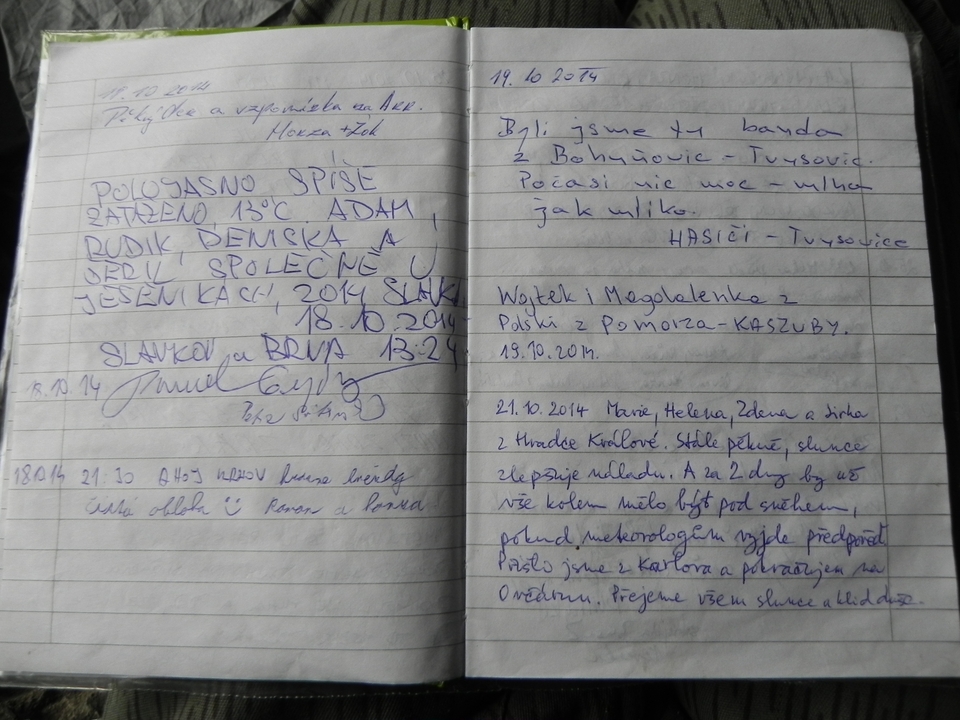 18.10 2014
a vzpomínka na
POLOJASNO SPÍŠE
ZATAŽENO, 13°C. ADAM,
RUDIK, DENISKA A
SPOLEČNĚ V
JESENIKÁCH, 2014
18.10.2014
SLAVKOV u BRNA 13:24
18.10.14
18.10.14 21:30 AHOJ
čistá obloha ☺ Roman a
19.10 2014
Byli jsme tu banda
z Bohuňovic - Trusovic.
Počasi nic moc - mlha
jak mliko.
HASIČI - Trusovice
Wojtek i Magdalenka z
Polski z Pomorza-KASZUBY.
19.10.2014.
21.10.2014 Marie, Helena, Zdena a Jirka
z Hradce Králové. Stále pěkně, slunce
zlepšuje náladu. A za 2 dny by už
vše kolem mělo být pod sněhem,
pokud meteorologům vyjde předpověď.
Přišli jsme z Karlova a pokračujem na
Ovčárnu. Přejeme všem slunce a klid duše.